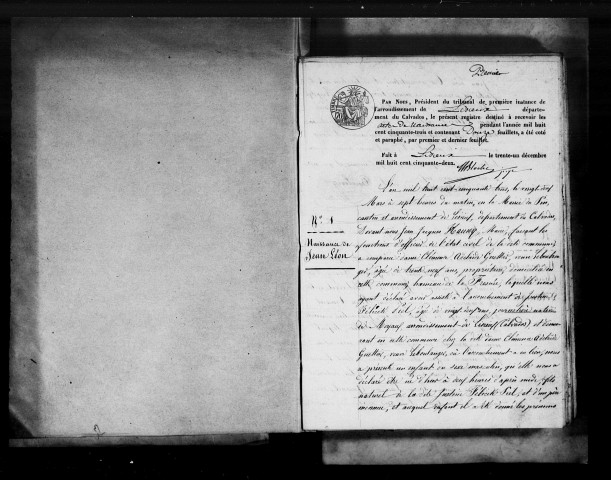 Premier
PAR NOUS, Président du tribunal de première instance de
l'arrondissement de Lisieux départe-
ment du Calvados, le présent registre destiné à recevoir les
actes de naissance pendant l'année mil huit
cent cinquante-trois et contenant Douze feuillets, a été coté
et paraphé, par premier et dernier feuillet.
FAIT à Lisieux le trente-un décembre
mil huit cent cinquante-deux.
L'an mil huit cent cinquante trois, le vingt neuf
Mars à sept heures du matin, en la Mairie de
canton et arrondissement de Lisieux, département du Calvados,
Devant nous Jean Jacques Maire, faisant les
fonctions d'officier de l'état civil de la dite commune,
N° 1
Naissance de
Jean Léon
a comparu dame Clémence Adélaïde veuve Leboulan-
ger, âgée de trente neuf ans, propriétaire, domiciliée en
cette commune, hameau de la laquelle nous
ayant déclaré avoir assisté à l'accouchement de Justine
âgée de vingt ans, journalière, native
de arrondissement de Lisieux (Calvados) et demeu-
rant en cette commune chez la dite dame Clémence Adélaïde
veuve Leboulanger, où l'accouchement a eu lieu, nous
a présenté un enfant du sexe masculin, qu'elle nous a
déclaré être né d'hier à heures d'après midi, fils
naturel de la dite Justine et d'un père
inconnu, et auquel enfant il a été donné les prénoms